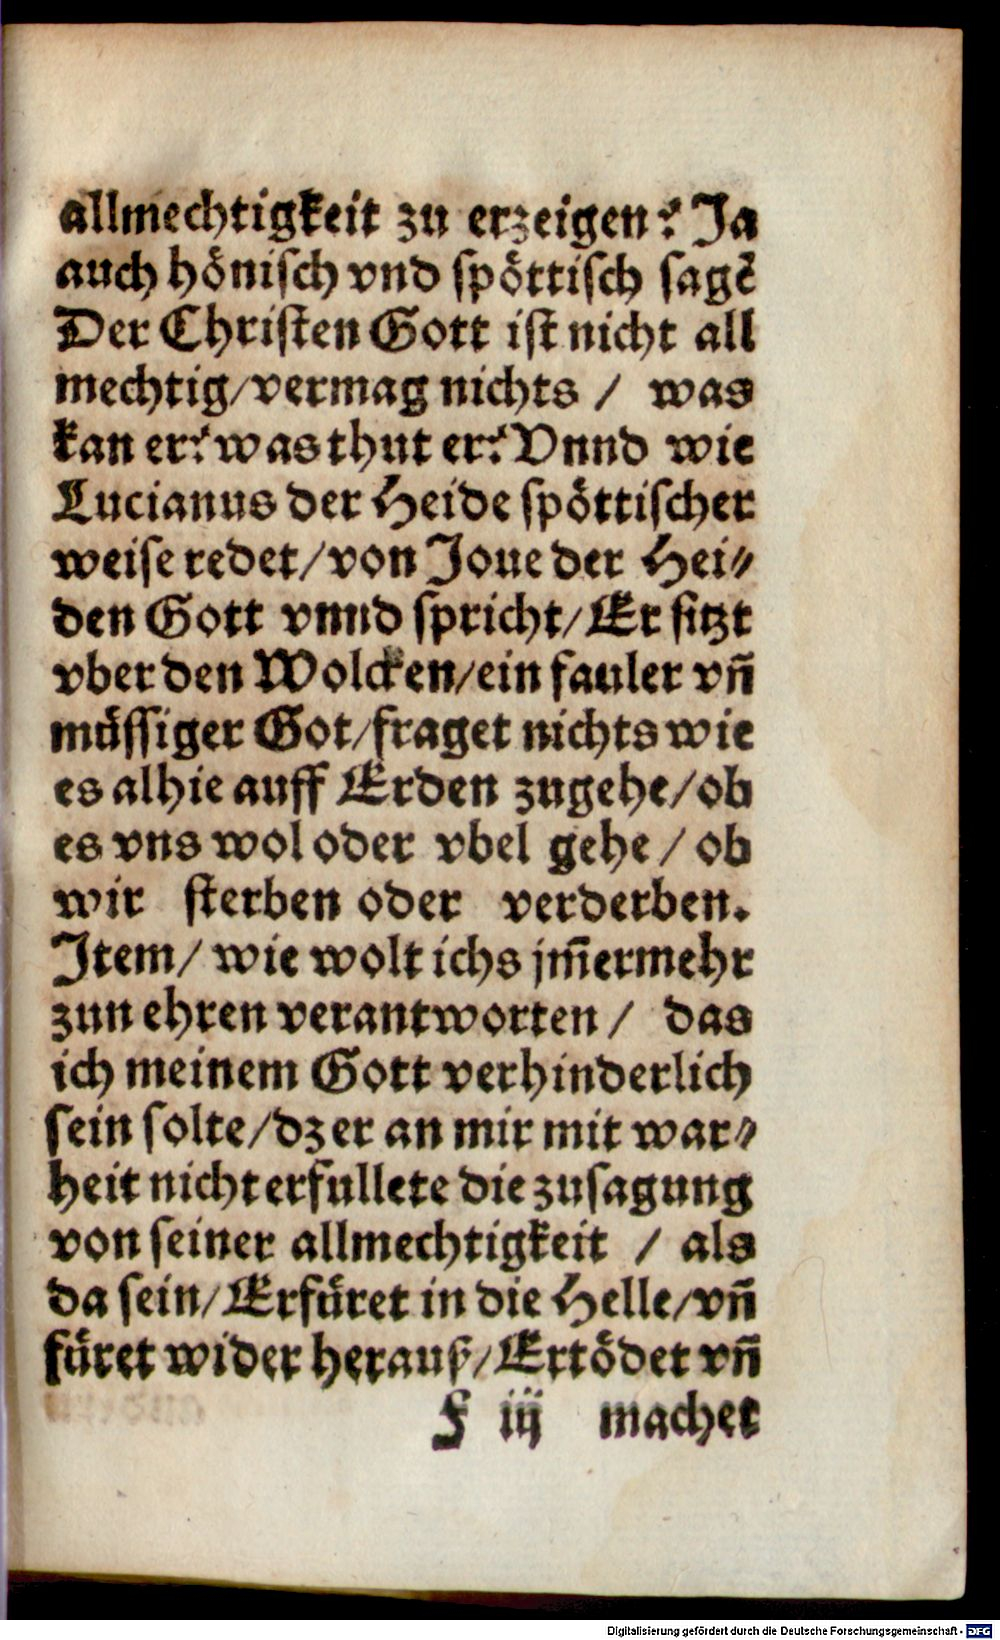 allmechtigkeit zu erzeigen? Ja
auch hönisch vnd spöttisch sagē
Der Christen Gott ist nicht all
mechtig/vermag nichts / was
kan er? was thut er? Vnnd wie
Lucianus der Heide spöttischer
weise redet/von Joue der Hei⸗
den Gott vnnd spricht/Er sitzt
vber den Wolcken/ein fauler vn̄
müssiger Got/fraget nichts wie
es alhie auff Erden zugehe/ob
es vns wol oder vbel gehe / ob
wir sterben oder verderben.
Item/ wie wolt ichs jm̄ermehr
zun ehren verantworten / das
ich meinem Gott verhinderlich
sein solte/dz er an mir mit war⸗
heit nicht erfullete die zusagung
von seiner allmechtigkeit / als
da sein/Erfüret in die Helle/vn̄
füret wider herauß/Ertödet vn̄
F iij machet
Digitalisierung gefördert durch die Deutsche Forschungsgemeinschaft - DFG